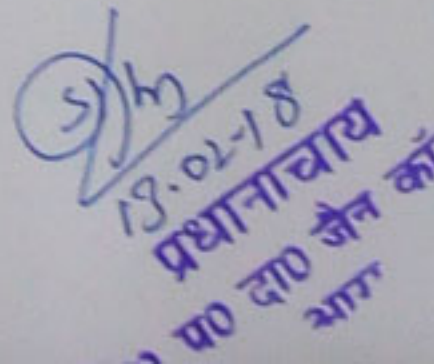 19.02-18
प्रधानाचार्य
प० दा० जैन कॉ